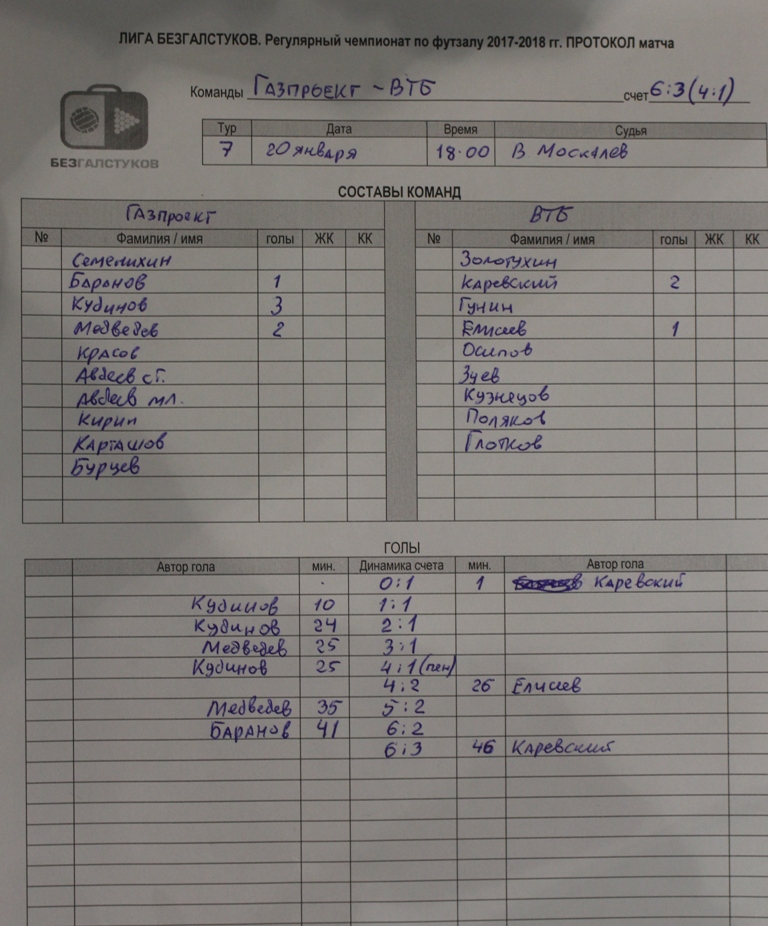 ЛИГА БЕЗГАЛСТУКОВ. Регулярный чемпионат по футзалу 2017-2018 гг. ПРОТОКОЛ матча
Команды Газпроект - ВТБ счет 6:3 (4:1)
БЕЗГАЛСТУКОВ
Тур Дата Время Судья
7 20 января 18.00 В. Москалев
СОСТАВЫ КОМАНД
Газпроект ВТБ
№ Фамилия / имя голы ЖК КК № Фамилия / имя голы ЖК КК
Семелихин Золотухин
Баранов 1 Каревский 2
Кудинов 3 Гунин
Медведев 2 Елисеев 1
Красов Осипов
Авдеев ст. Зуев
Авдеев мл. Кузнецов
Кирип Поляков
Карташов Глотков
Бурцев
ГОЛЫ
Автор гола мин. Динамика счета мин. Автор гола
0:1 1 Каревский
Кудинов 10 1:1
Кудинов 24 2:1
Медведев 25 3:1
Кудинов 25 4:1 (пен)
4:2 26 Елисеев
Медведев 35 5:2
Баранов 41 6:2
6:3 46 Каревский